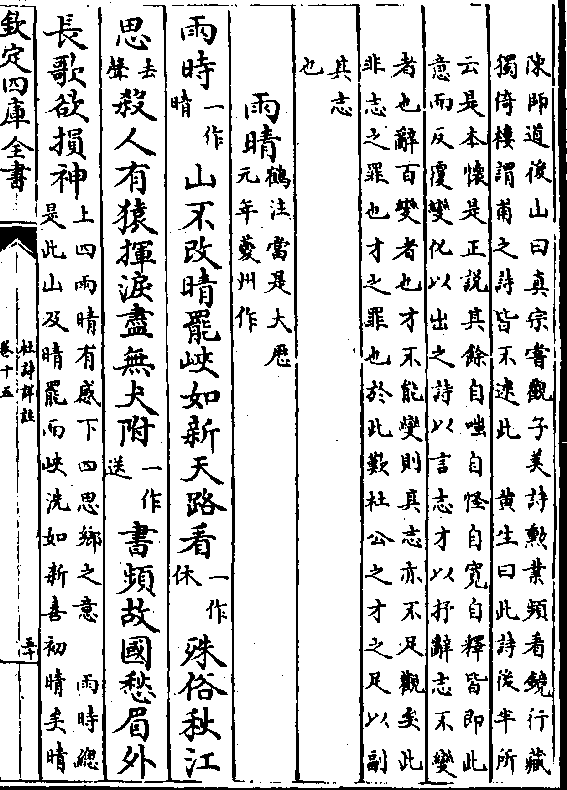 陳師道後山曰真宗嘗觀子美詩勲業頻看鏡行藏
獨倚樓謂甫之詩皆不逮此 黄生曰此詩後半所
云是本懷是正説其餘自嗤自怪自寛自釋皆即此
意而反覆變化以出之詩以言志才以抒辭志不變
者也辭百變者也才不能變則其志亦不足觀矣此
非志之罪也才之罪也於此歎杜公之才之足以副
其志
也
雨晴 鶴注當是大厯
元年夔州作
雨時一作晴山不改晴罷峽如新天路看一作休殊俗秋江
思去聲殺人有猿揮淚盡無犬附一作送書頻故國愁眉外
長歌欲損神 上四雨晴有感下四思鄉之意 雨時緫
是此山及晴罷而峽洗如新喜初晴矣晴
欽定四庫全書
杜詩詳註
卷十五